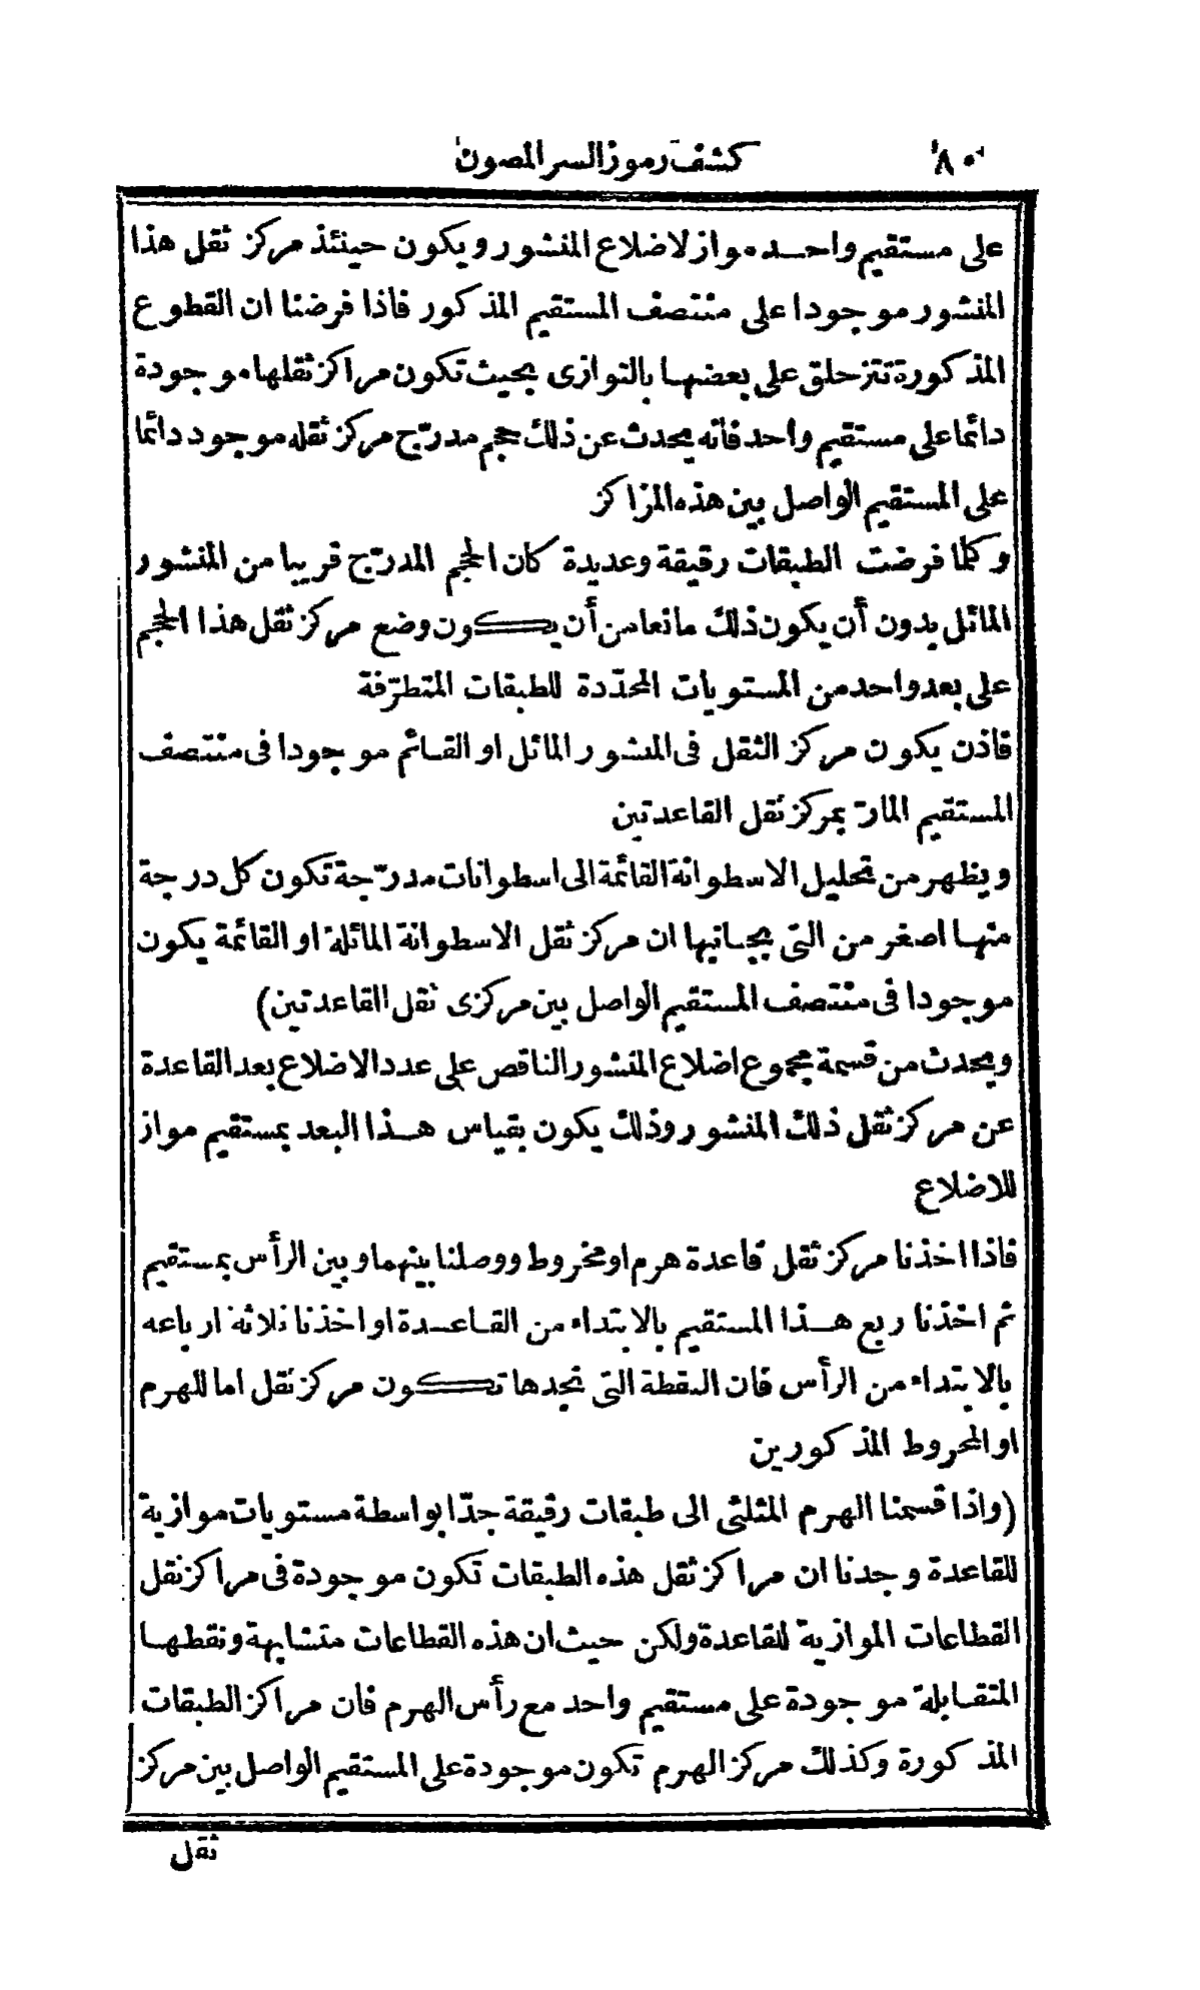 ٨٠ كشف رموز السر المصون
على مستقيم واحد مواز لاضلاع المنشور ويكون حينئذ مركز ثقل هذا
المنشور موجودا على منتصف المستقيم المذكور فاذا فرضنا ان القطوع
المذكورة تتزحلق على بعضها بالتوازى بحيث تكون مراكز ثقلها موجودة
دائما على مستقيم واحد فانه يحدث عن ذلك حجم مدرّج مركز ثقله موجود دائما
على المستقيم الواصل بين هذه المراكز
وكلما فرضت الطبقات رقيقة وعديدة كان الحجم المدرّج قريبا من المنشور
المائل بدون أن يكون ذلك مانعا من أن يكون وضع مركز ثقل هذا الحجم
على بعد واحد من المستويات المحدّدة للطبقات المتطرّفة
فاذن يكون مركز الثقل فى المنشور المائل او القائم موجودا فى منتصف
المستقيم المارّ بمركز ثقل القاعدتين
ويظهر من تحليل الاسطوانة القائمة الى اسطوانات مدرّجة تكون كل درجة
منها اصغر من التى بجانبها ان مركز ثقل الاسطوانة المائلة او القائمة يكون
موجودا فى منتصف المستقيم الواصل بين مركزى ثقل القاعدتين)
ويحدث من قسمة مجموع اضلاع المنشور الناقص على عدد الاضلاع بعد القاعدة
عن مركز ثقل ذلك المنشور وذلك يكون بقياس هذا البعد بمستقيم مواز
للاضلاع
فاذا اخذنا مركز ثقل قاعدة هرم او مخروط ووصلنا بينهما وبين الرأس بمستقيم
ثم اخذنا ربع هذا المستقيم بالابتداء من القاعدة او اخذنا ثلاثة ارباعه
بالابتداء من الرأس فان النقطة التى نجدها تكون مركز ثقل اما للهرم
او المخروط المذكورين
(واذا قسمنا الهرم المثلثى الى طبقات رقيقة جدّا بواسطة مستويات موازية
للقاعدة وجدنا ان مراكز ثقل هذه الطبقات تكون موجودة فى مراكز ثقل
القطاعات الموازية للقاعدة ولكن حيث ان هذه القطاعات متشابهة ونقطها
المتقابلة موجودة على مستقيم واحد مع رأس الهرم فان مراكز الطبقات
المذكورة وكذلك مركز الهرم تكون موجودة على المستقيم الواصل بين مركز
ثقل